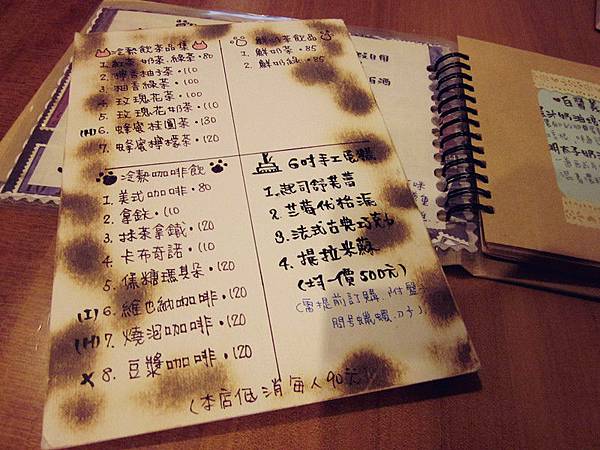 冷熱飲茶品集
1. 紅茶.奶茶.綠茶•80
2. 博香柚子茶•110
3. 柚香綠茶•100
4. 玫瑰花茶•100
5. 玫瑰花奶茶•110
(H)6. 蜂蜜桂圓茶•130
7. 蜂蜜檸檬茶•120
鮮奶茶飲品
1. 鮮奶茶•85
2. 鮮奶綠•85
冷熱咖啡飲
1. 美式咖啡•80
2. 拿鐵•110
3. 抹茶拿鐵•120
4. 卡布奇諾•110
5. 焦糖瑪其朵•120
(I)6. 維也納咖啡•120
(H)7. 燒泡咖啡•120
X 8. 豆漿咖啡•120
6吋手工蛋糕
1. 起司舒芙蕾
2. 芝莓优格派
3. 法式古典巧克力
4. 提拉米蘇
(均一價500元)
(需提前訂購.附盤子
問号蠟蠟.刀子)
(本店低消每人90元)